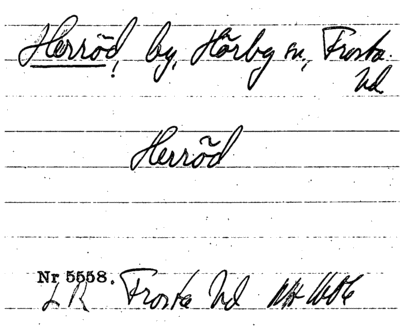 Herröd, by, Hörby sn, Frosta
hd
Herröd
Nr 5558.
LR Frosta hd